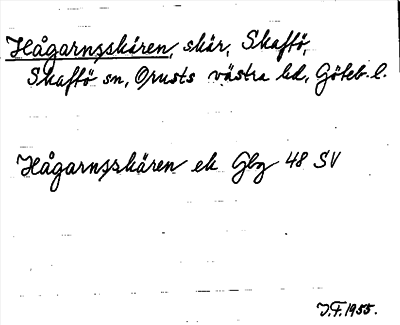 Hågarnsskären, skär, Skaftö,
Skaftö sn, Orusts västra hd, Göteb. l.
Hågarnsskären ek Gbg 48 SV
J.F. 1955.